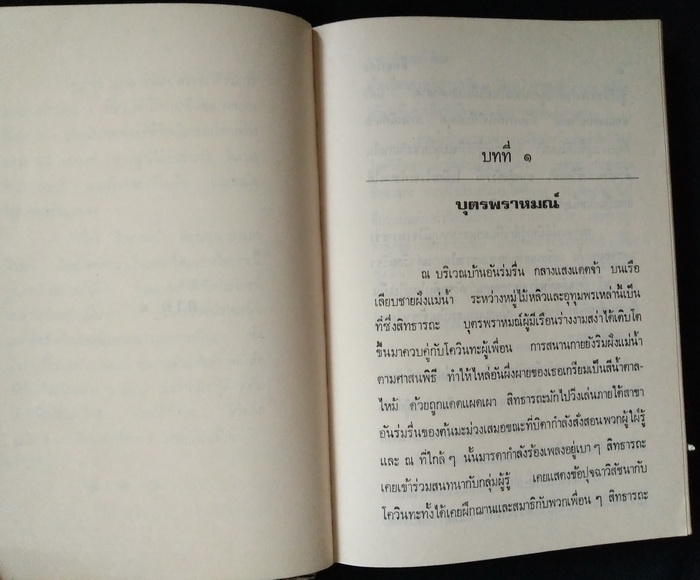 บทที่ ๑
บุตรพราหมณ์
ณ บริเวณบ้านอันร่มรื่น กลางแสงแดดจ้า บนเรือ
เลียบชายฝั่งแม่น้ำ ระหว่างหมู่ไม้หลิวและอุทุมพรเหล่านี้เป็น
ที่ซึ่งสิทธารถะ บุตรพราหมณ์ผู้มีเรือนร่างงามสง่าได้เติบโต
ขึ้นมาควบคู่กับโควินทะผู้เพื่อน การสนานกายยังริมฝั่งแม่น้ำ
ตามศาสนพิธี ทำให้ไหล่อันผึ่งผายของเธอเกรียมเป็นสีน้ำตาล-
ไหม้ ด้วยถูกแดดแผดเผา สิทธารถะมักไปวิ่งเล่นภายใต้สาขา
อันร่มรื่นของต้นมะม่วงเสมอขณะที่บิดากำลังสั่งสอนพวกผู้ใฝ่รู้
และ ณ ที่ใกล้ ๆ นั้นมารดากำลังร้องเพลงอยู่เบา ๆ สิทธารถะ
เคยเข้าร่วมสนทนากับกลุ่มผู้รู้ เคยแสดงข้อปุจฉาวิสัชนากับ
โควินทะทั้งได้เคยฝึกฌานและสมาธิกับพวกเพื่อน ๆ สิทธารถะ